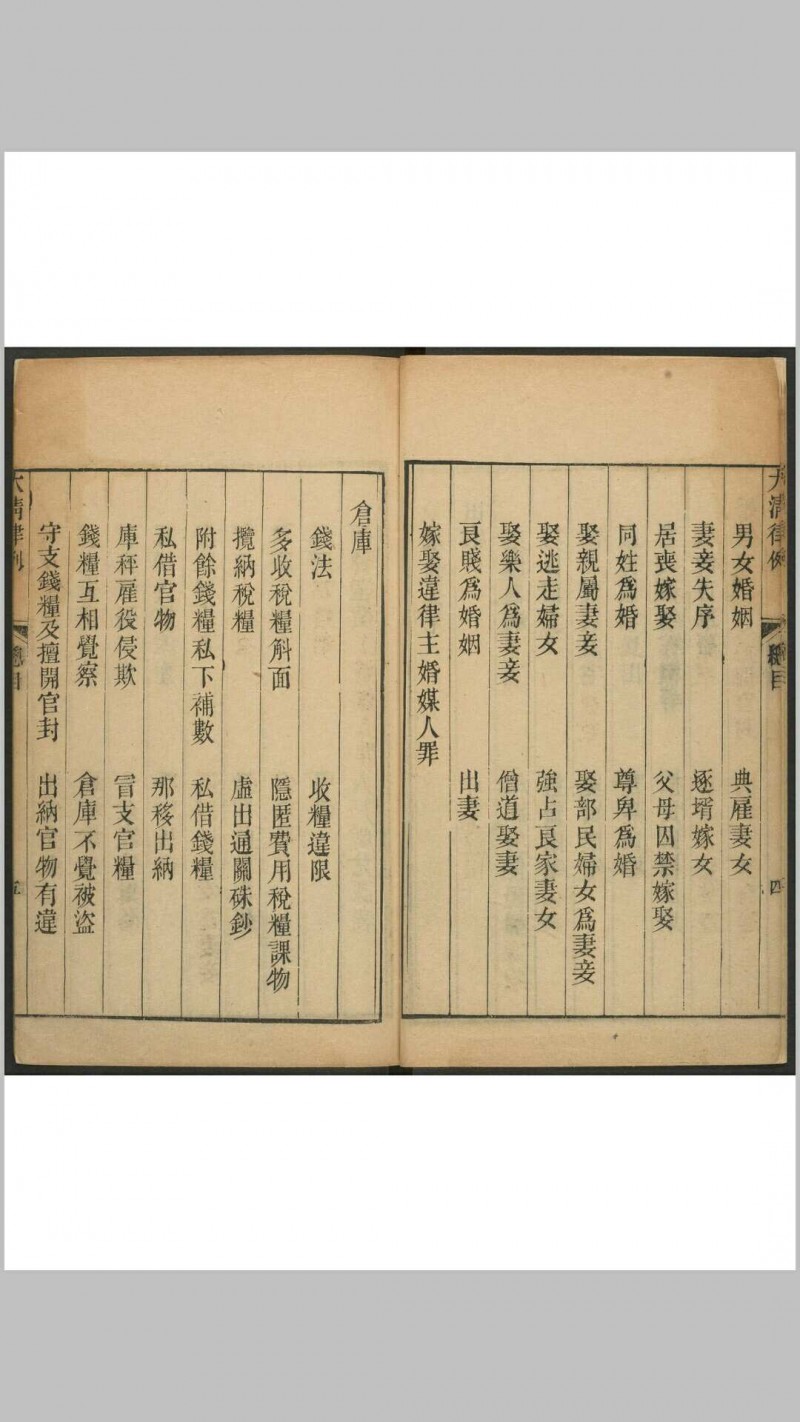 大清律例 總目 四
男女婚姻 典雇妻女
妻妾失序 逐壻嫁女
居喪嫁娶 父母囚禁嫁娶
同姓爲婚 尊卑爲婚
娶親屬妻妾 娶部民婦女爲妻妾
娶逃走婦女 強占良家妻女
娶樂人爲妻妾 僧道娶妻
良賤爲婚姻 出妻
嫁娶違律主婚媒人罪
倉庫
錢法 收糧違限
多收稅糧斛面 隱匿費用稅糧課物
攬納稅糧 虛出通關硃鈔
附餘錢糧私下補數 私借錢糧
私借官物 那移出納
庫秤雇役侵欺 冒支官糧
錢糧互相覺察 倉庫不覺被盜
守支錢糧及擅開官封 出納官物有違
大清律例 總目 五